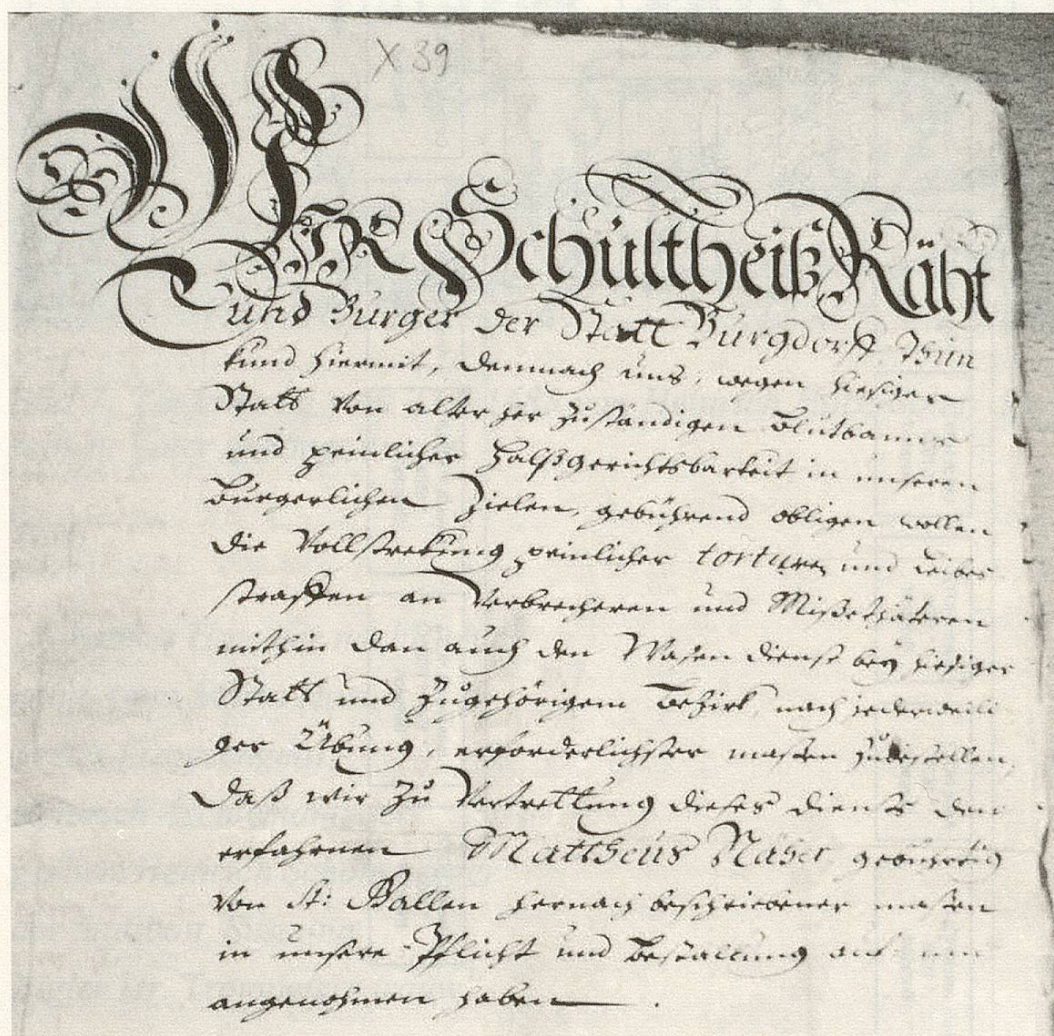 X 39
WIR Schultheiß Räht
und Burger der Statt Burgdorff, Thun
kund hiermit, demnach uns, wegen hiesiger
Statt von alter her zuständigen Blutbanns
und peinlicher Halßgerichtsbarkeit in unseren
Burgerlichen Zielen, gebührend obligen wollen
die Vollstrekung peinlicher torturen und Leibes
straffen an Verbrecheren und Mißethäteren
mithin dan auch den Wasen dienst bey hiesiger
Statt und Zugehörigem Bezirk, nach jederweili
ger Übung, erforderlichster maßen zubestellen,
Daß wir zu Vertrettung dieses diensts den
erfahrnen Mattheus Näher gebührtig
von St: Gallen hernach beschriebener maßen
in unsere Pflicht und Bestallung auf und
angenohmen haben.